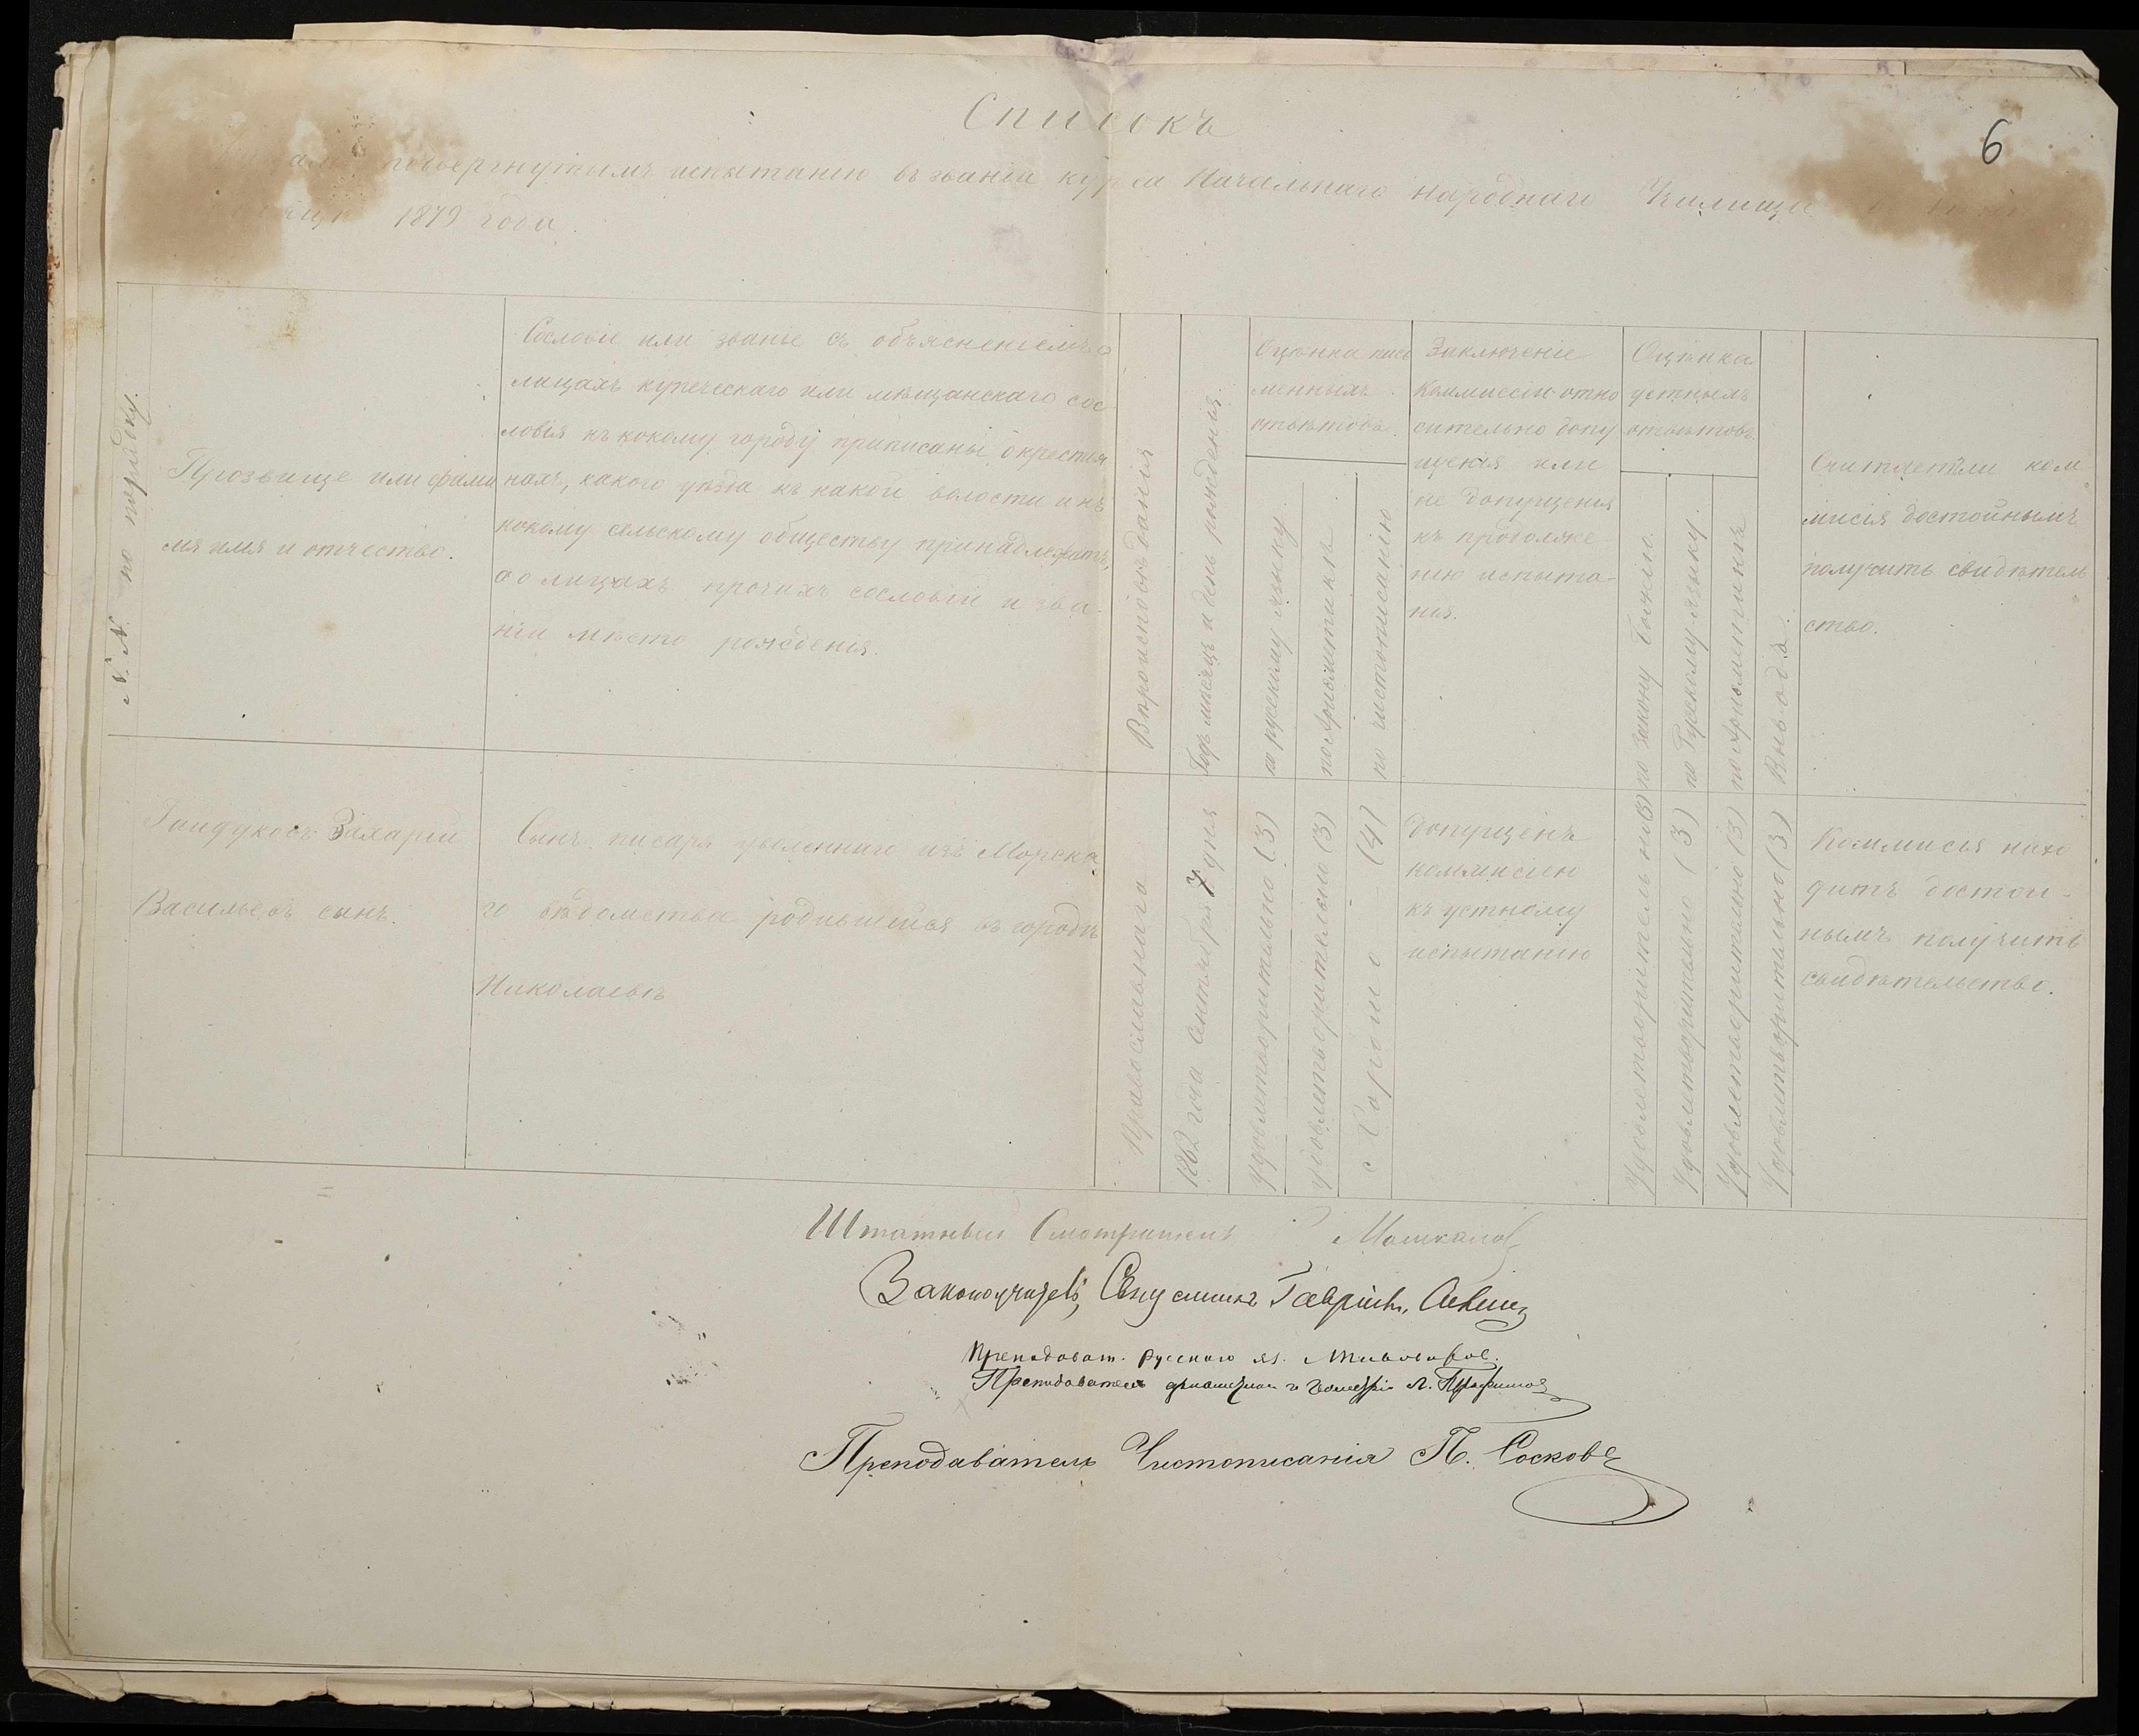 6
Списокъ
подвергнутымъ испытанію въ знаніи курса Начальнаго народнаго Училища
1879 года.
N. N. по порядку.
Прозвище или фами
лія имя и отчество.
Сословіе или званіе съ объясненіемъ о
лицахъ купеческаго или мѣщанскаго сос
ловія къ кокому городу приписаны, о крестья
нахъ, какого уѣзда къ какой волости и къ
кокому сельскому обществу принадлежатъ,
а о лицахъ прочихъ сословій и зва-
ній мѣсто рожденія.
Вѣроисповѣданія
Годъ мѣсяцъ и день рожденія.
Оцѣнка пись
менныхъ
отвѣтовъ.
по русскому языку.
по Арифметикѣ
по чистописанію
Заключеніе
Коммиссіи отно
сительно допу
щенія или
не допущенія
къ продолже-
нію испыта-
нія.
Оцѣнка
устныхъ
отвѣтовъ.
по Закону Божію.
по Русскому языку.
по Арифметикѣ
Выводъ.
Считаетъ ли ком
мисія достойнымъ
получить свидѣтель
ство.
Гайдуковъ Захарій
Васильевъ сынъ.
Сынъ писаря уволеннаго изъ Морска
го вѣдомства родившійся въ городѣ
Николаевѣ
Православнаго
1862 года Сентября 7 дня
Удовлетворительно (3)
удовлетворительно (3)
Хорошо (4)
Допущенъ
коммисіею
къ устному
испытанію
Удовлетворительно (3)
Удовлетворительно (3)
Удовлетворительно (3)
Удовлетворительно (3)
Коммисія нахо
дитъ достой-
нымъ получить
свидѣтельство.
Штатный Смотритель
Законоучитель, Священникъ Гавріилъ
Преподават. Русскаго яз.
Преподаватель
Преподаватель Чистописанія П. Сосковъ